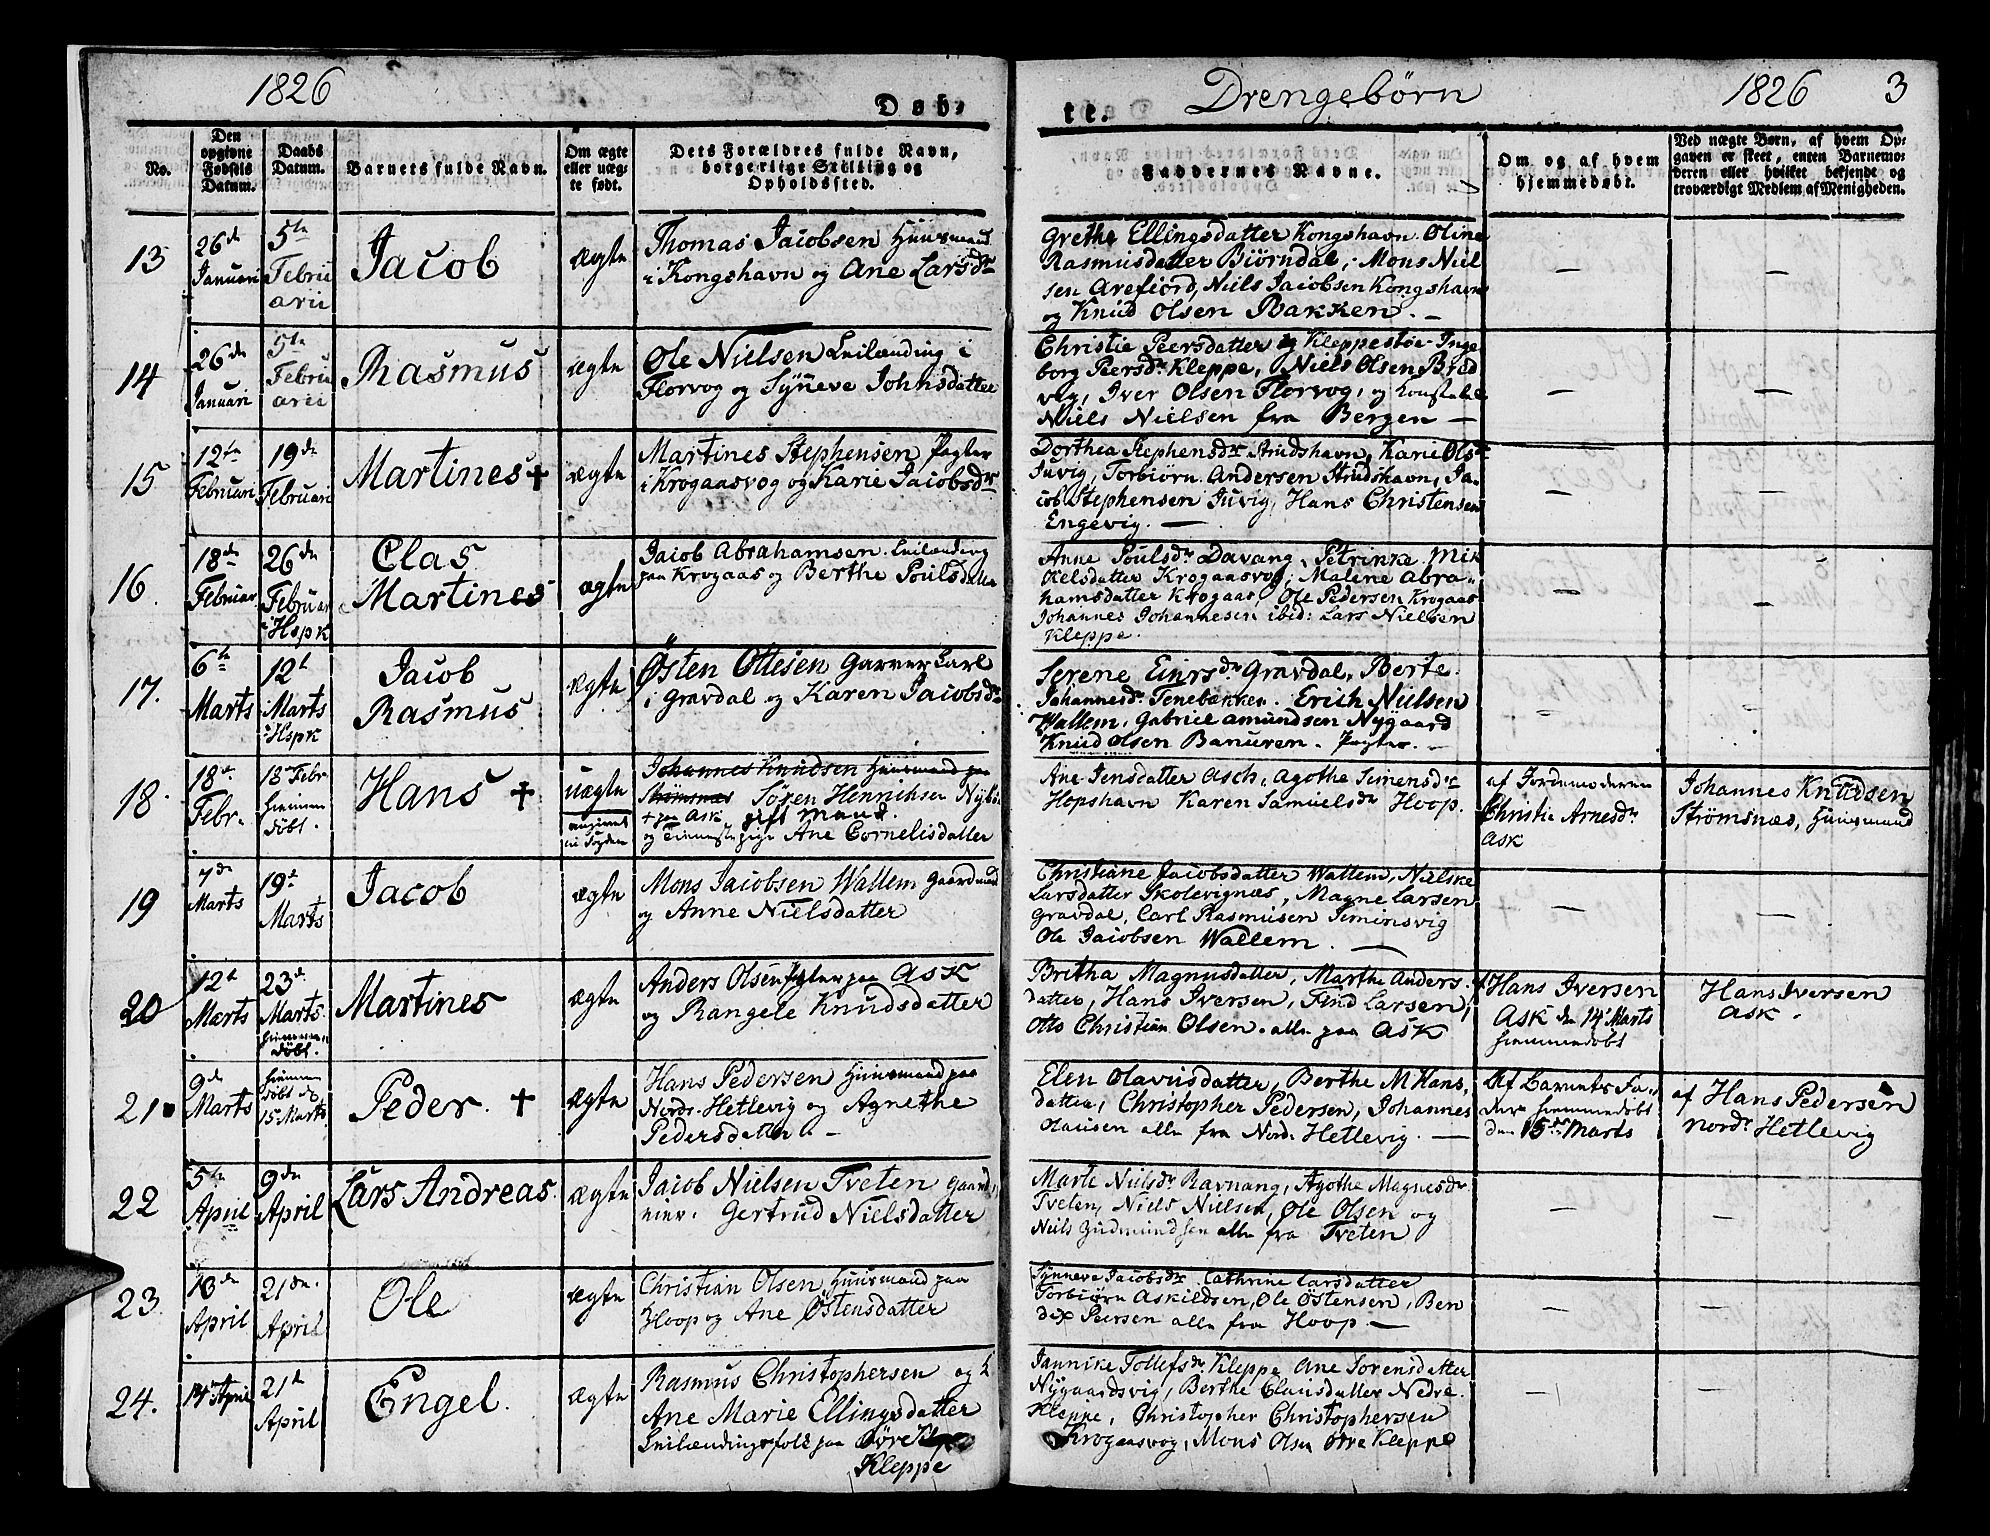 1826
Døb-
te.
Drengebørn
1826
3
No.
Den opgivne Fødsels Datum.
Daabs Datum.
Barnets fulde Navn.
Om ægte eller uægte født.
Dets Forældres fulde Navn, borgerlige Stilling og Opholdssted.
Faddernes Navne.
Om og af hvem hjemmedøbt.
Ved uægte Børn, af hvem Opgaven er skeet, enten Barnemoderen eller hvilket bekjendt og troværdigt Medlem af Menigheden.
13
26de Januari
5te Februarii
Jacob
ægte
Thomas Jacobsen Huusmand
i Kongshavn og Ane Larsdr
Grethe Ellingsdatter Kongshavn. Oline
Rasmusdatter Biørndal, Mons Niel
sen Arefiord, Niels Jacobsen Kongshavn
og Knud Olsen Bakken. -
14
26de Januari
5te Februarii
Rasmus
ægte
Ole Nielsen Leilænding i
Florvog og Synneve Johnsdatter
Christie Peersdatter Kleppestøe Inge
borg Peersdr Kleppe, Niels Olsen Bred
vig, Iver Olsen Florvog, og Konstabel
Niels Nielsen fra Bergen -
15
12te Februari
19de Februari
Martines +
ægte
Martines Stephensen Pagter
i Krogaasvog og Karie Jacobsdr
Dorthea Stephensdr Strudshavn, Karie Olsdr
Juvig, Torbiørn Andersen Strudshavn, Ja
cob Stephensen Juvig, Hans Christensen
Engevig. -
16.
18de Februar
26de Februar i Hspk
Clas
Martines
ægte
Jacob Abrahamsen Leilænding
paa Krogaas og Berthe Poulsdatter
Anne Poulsdr Davang, Petrinke Mik
kelsdatter Krogaasvog, Malene Abra-
hamsdatter Krogaas, Ole Pedersen Krogaas
Johannes Johannesen ibid: Lars Nielsen
Kleppe.
17.
6te Marts
12t Marts i Hspk
Jacob
Rasmus
ægte
Østen Ottesen Garver Karl
i Gravdal og Karen Jacobsdr
Serene Einrsdr Gravdal, Berte
Johannesdr Tenebækken. Erich Nielsen
Wallem, Gabriel Amundsen Nygaard
Knud Olsen Banuren. Pagter. -
18.
18de Febr.
18de Febr hiemmedøbt.
Hans +
uægte
Johannes Knudsen Huusmand paa
Strømsnæs Søren Henriksen
+ paa Ask gift Mand.
og Tienestepige Ane Cornelisdatter
Ane Jensdatter Asch, Agothe Simensdr
Hopshavn Karen Samuelsdr Hoop.
af Jordemoderen
Christie Arnesdr
Ask
Johannes Knudsen
Strømsnæs, Huusmand
19
7de Marts
19t Marts
Jacob
ægte
Mons Jacobsen Wallem Gaardmand
og Anne Nielsdatter
Christiane Jacobsdatter Wallem, Nielske
Larsdatter Skolevignæs, Magne Larsen
Gravdal, Carl Rasmusen Siminsvig
Ole Jacobsen Wallem. -
20
12t Marts
23d Marts. hiemmedøbt.
Martines
ægte
Anders Olsen Pagter paa Ask
og Rangele Knudsdatter
Britha Magnusdatter, Marthe Anders
datter, Hans Iversen, Find Larsen,
Otto Christian Olsen. alle paa Ask
Hans Iversen
Ask den 14t Marts
hiemmedøbt
Hans Iversen
Ask.
21.
9de Marts
hiemmedøbt d. 15de Marts.
Peder. +
ægte
Hans Pedersen Huusmand paa
Nordr Hetlevig og Agnethe
Pedersdatter -
Elen Olavusdatter, Berthe M Hans,
datter, Christopher Pedersen, Johannes
Olausen alle fra Nordr Hetlevig. -
Af Barnets Fa-
der hiemmedøbt
den 15de Marts
af Hans Pedersen
Nordr Hetlevig
22
5te April
9de April
Lars Andreas.
ægte
Jacob Nielsen Tveten Gaard,
Gertrud Nielsdatter
Marte Nielsdr Ravnang, Agothe Magnesdr
Tveten, Niels Nielsen, Ole Olsen og
Niels Gudmundsen alle fra Tveten
23.
13de April
21de April
Ole
ægte
Christian Olsen Huusmand paa
Hoop og Ane Østensdatter
Synneve Jacobsdr Cathrine Larsdatter
Torbiørn Askildsen, Ole Østensen, Ben
dix Peersen alle fra Hoop -
24.
14de April
21de April
Engel.
ægte
Rasmus Christophersen og
Ane Marie Ellingsdatter
Leilændingsfolk paa Øvre
Kleppe
Jannike Tollefsdr Kleppe, Ane Sorensdatter
Nygaardsvig, Berthe Clausdatter Nedre
Kleppe, Christopher Christophersen
Krogaasvog, Mons Olsen Øvre Kleppe